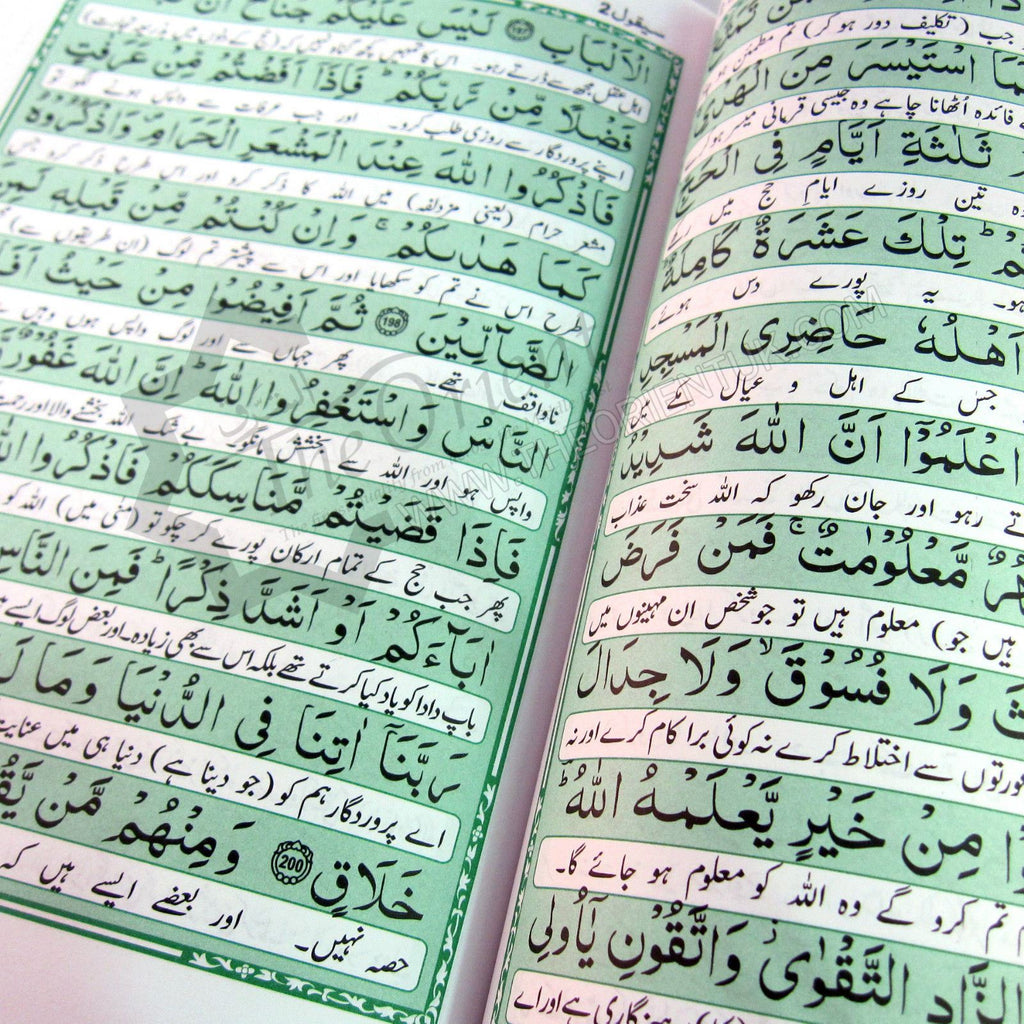 جب (تکلیف دور ہو کر) تم مطمئن ہو
فَمَا اسْتَيْسَرَ مِنَ الْهَدْيِ
فائدہ اُٹھانا چاہے وہ جیسی قربانی میسر ہو کرے
ثَلٰثَةِ اَيَّامٍ فِى الْحَجِّ
تین روزے ایامِ حج میں رکھے
تِلْكَ عَشَرَةٌ كَامِلَةٌ
ہو۔ یہ پورے دس ہوئے۔
اَهْلُهٗ حَاضِرِى الْمَسْجِدِ
جس کے اہل و عیال مکے میں
اعْلَمُوْٓا اَنَّ اللّٰهَ شَدِيْدُ
تے رہو اور جان رکھو کہ اللہ سخت عذاب
مَّعْلُوْمٰتٌ ۚ فَمَنْ فَرَضَ
ہیں جو) معلوم ہیں تو جو شخص ان مہینوں میں
وَلَا فُسُوْقَ ۙ وَلَا جِدَالَ
عورتوں سے اختلاط کرے نہ کوئی برا کام کرے اور نہ
مِنْ خَيْرٍ يَّعْلَمْهُ اللّٰهُ ؕ
تم کرو گے وہ اللہ کو معلوم ہو جائے گا۔
الزَّادِ التَّقْوٰى وَاتَّقُوْنِ يٰٓاُولِى
پرہیزگاری ہے اور اے
سیقول 2
الْاَلْبَابِ ۝197 لَيْسَ عَلَيْكُمْ جُنَاحٌ اَنْ
اہل عقل مجھ سے ڈرتے رہو۔ اس کا تمہیں کچھ گناہ نہیں کہ (حج کے دنوں میں بذریعہ تجارت)
فَضْلًا مِّنْ رَّبِّكُمْ ؕ فَاِذَآ اَفَضْتُمْ مِّنْ عَرَفٰتٍ
اپنے پروردگار سے روزی طلب کرو۔ اور جب عرفات سے واپس ہونے لگو تو
فَاذْكُرُوا اللّٰهَ عِنْدَ الْمَشْعَرِ الْحَرَامِ ۪ وَاذْكُرُوْهُ
مشعر حرام (یعنی مزدلفہ) میں اللہ کا ذکر کرو اور اس طرح ذکر کرو جس
كَمَا هَدٰىكُمْ ۚ وَاِنْ كُنْتُمْ مِّنْ قَبْلِهٖ لَمِنَ
طرح اس نے تم کو سکھایا اور اس سے پیشتر تم لوگ (ان طریقوں سے)
الضَّآلِّيْنَ ۝198 ثُمَّ اَفِيْضُوْا مِنْ حَيْثُ اَفَاضَ
ناواقف تھے۔ پھر جہاں سے اور لوگ واپس ہوں وہیں
النَّاسُ وَاسْتَغْفِرُوا اللّٰهَ ؕ اِنَّ اللّٰهَ غَفُوْرٌ
واپس ہو اور اللہ سے بخشش مانگو۔ بے شک اللہ بخشنے والا اور رحمت
فَاِذَا قَضَيْتُمْ مَّنَاسِكَكُمْ فَاذْكُرُوا اللّٰهَ
پھر جب حج کے تمام ارکان پورے کر چکو تو (منٰی میں) اللہ کو
اٰبَآءَكُمْ اَوْ اَشَدَّ ذِكْرًا ؕ فَمِنَ النَّاسِ
باپ دادا کو یاد کیا کرتے تھے بلکہ اس سے بھی زیادہ۔ اور بعض لوگ ایسے ہیں
رَبَّنَآ اٰتِنَا فِى الدُّنْيَا وَمَا لَهٗ
اے پروردگار ہم کو (جو دینا ہے) دنیا ہی میں عنایت
خَلَاقٍ ۝200 وَمِنْهُمْ مَّنْ يَّقُوْلُ
حصہ نہیں۔ اور بعضے ایسے ہیں کہ
The Orient
WWW.THEORIENTUK.COM